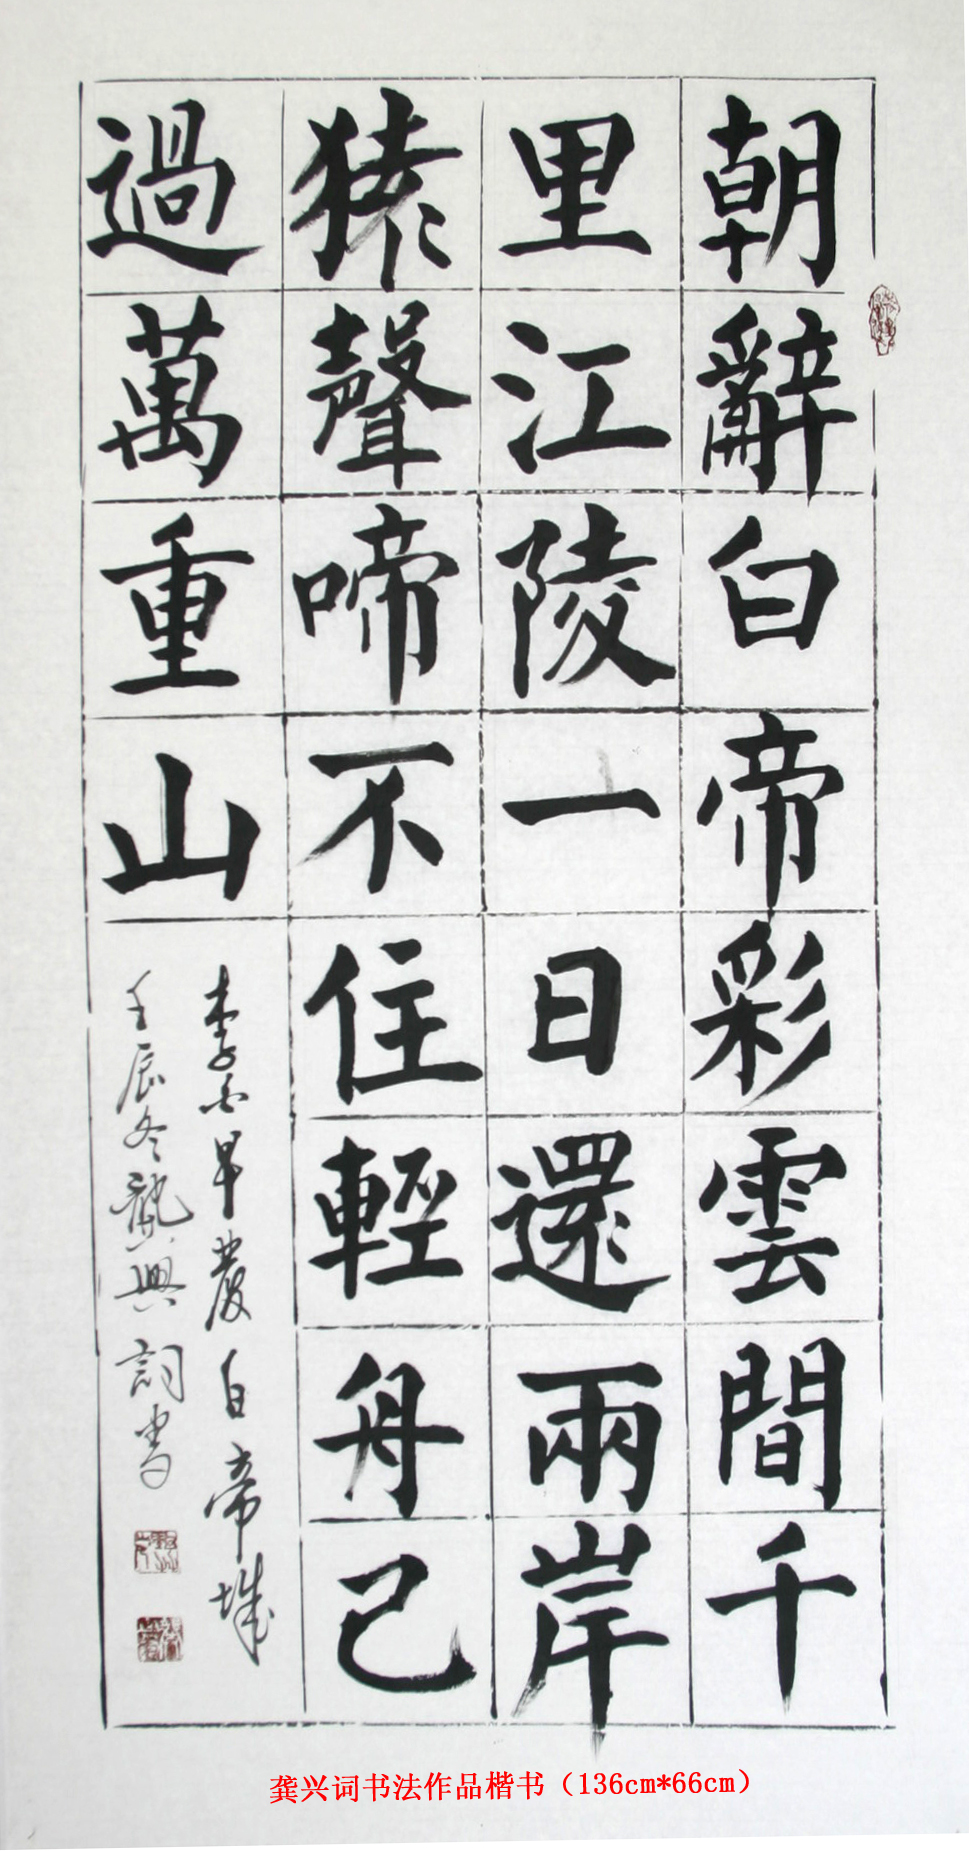 朝辭白帝彩雲間千
里江陵一日還兩岸
猿聲啼不住輕舟已
過萬重山
李白早發白帝城
壬辰冬龔興詞書
龚兴词书法作品楷书（136cm*66cm）